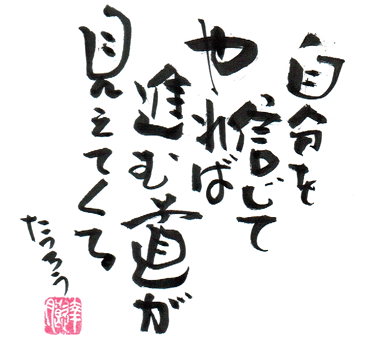 自分を
信じて
やれば
進む道が
見えてくる
たつろう